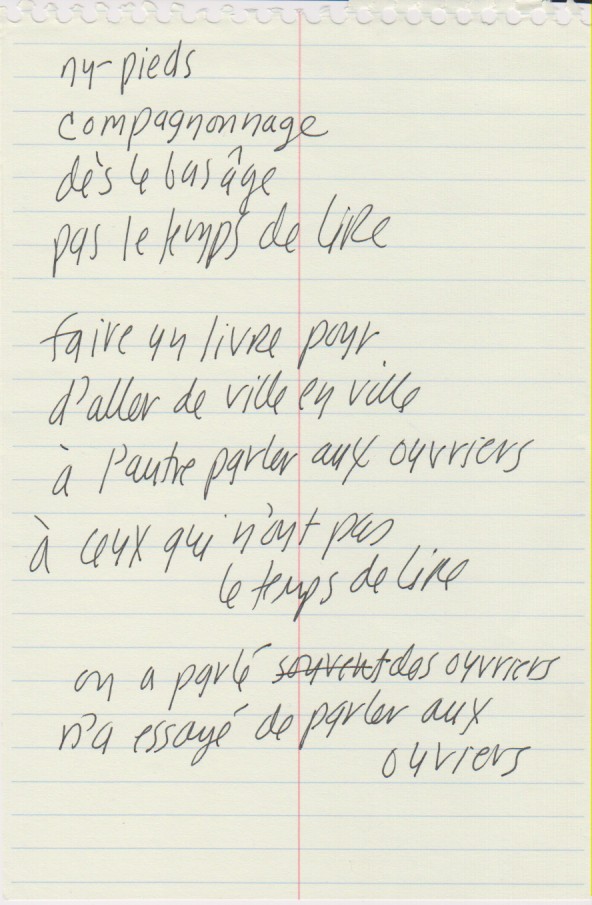 ny-pieds
compagnonnage
dès le bas âge
pas le temps de lire
faire un livre pour
d'aller de ville en ville
à l'autre parler aux ouvriers
à ceux qui n'ont pas
le temps de lire
on a parlé souvent des ouvriers
n'a essayé de parler aux
ouvriers